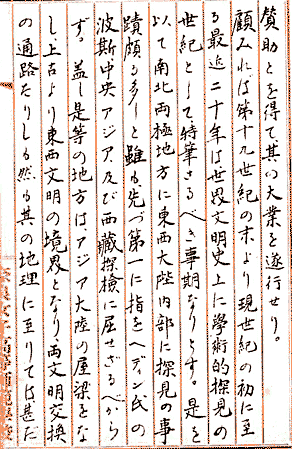 賛助とを得て其の大業を遂行せり。
顧みれば第十九世紀の末より現世紀の初に至
る最近二十年は世界文明史上に學術的探見の
世紀として、特筆さるべき事期なりとす。是を
以て南北両極地方に東西大陸内部に探見の事
蹟頗る多しと雖も先づ第一に指をヘデン氏の
波斯、中央アジア、及び西藏探検に屈せざるべから
ず。蓋し是等の地方は、アジア大陸の屋梁をな
し上古より東西文明の境界となり、両文明交換
の通路たりしも然も其の地理に至りては甚だ